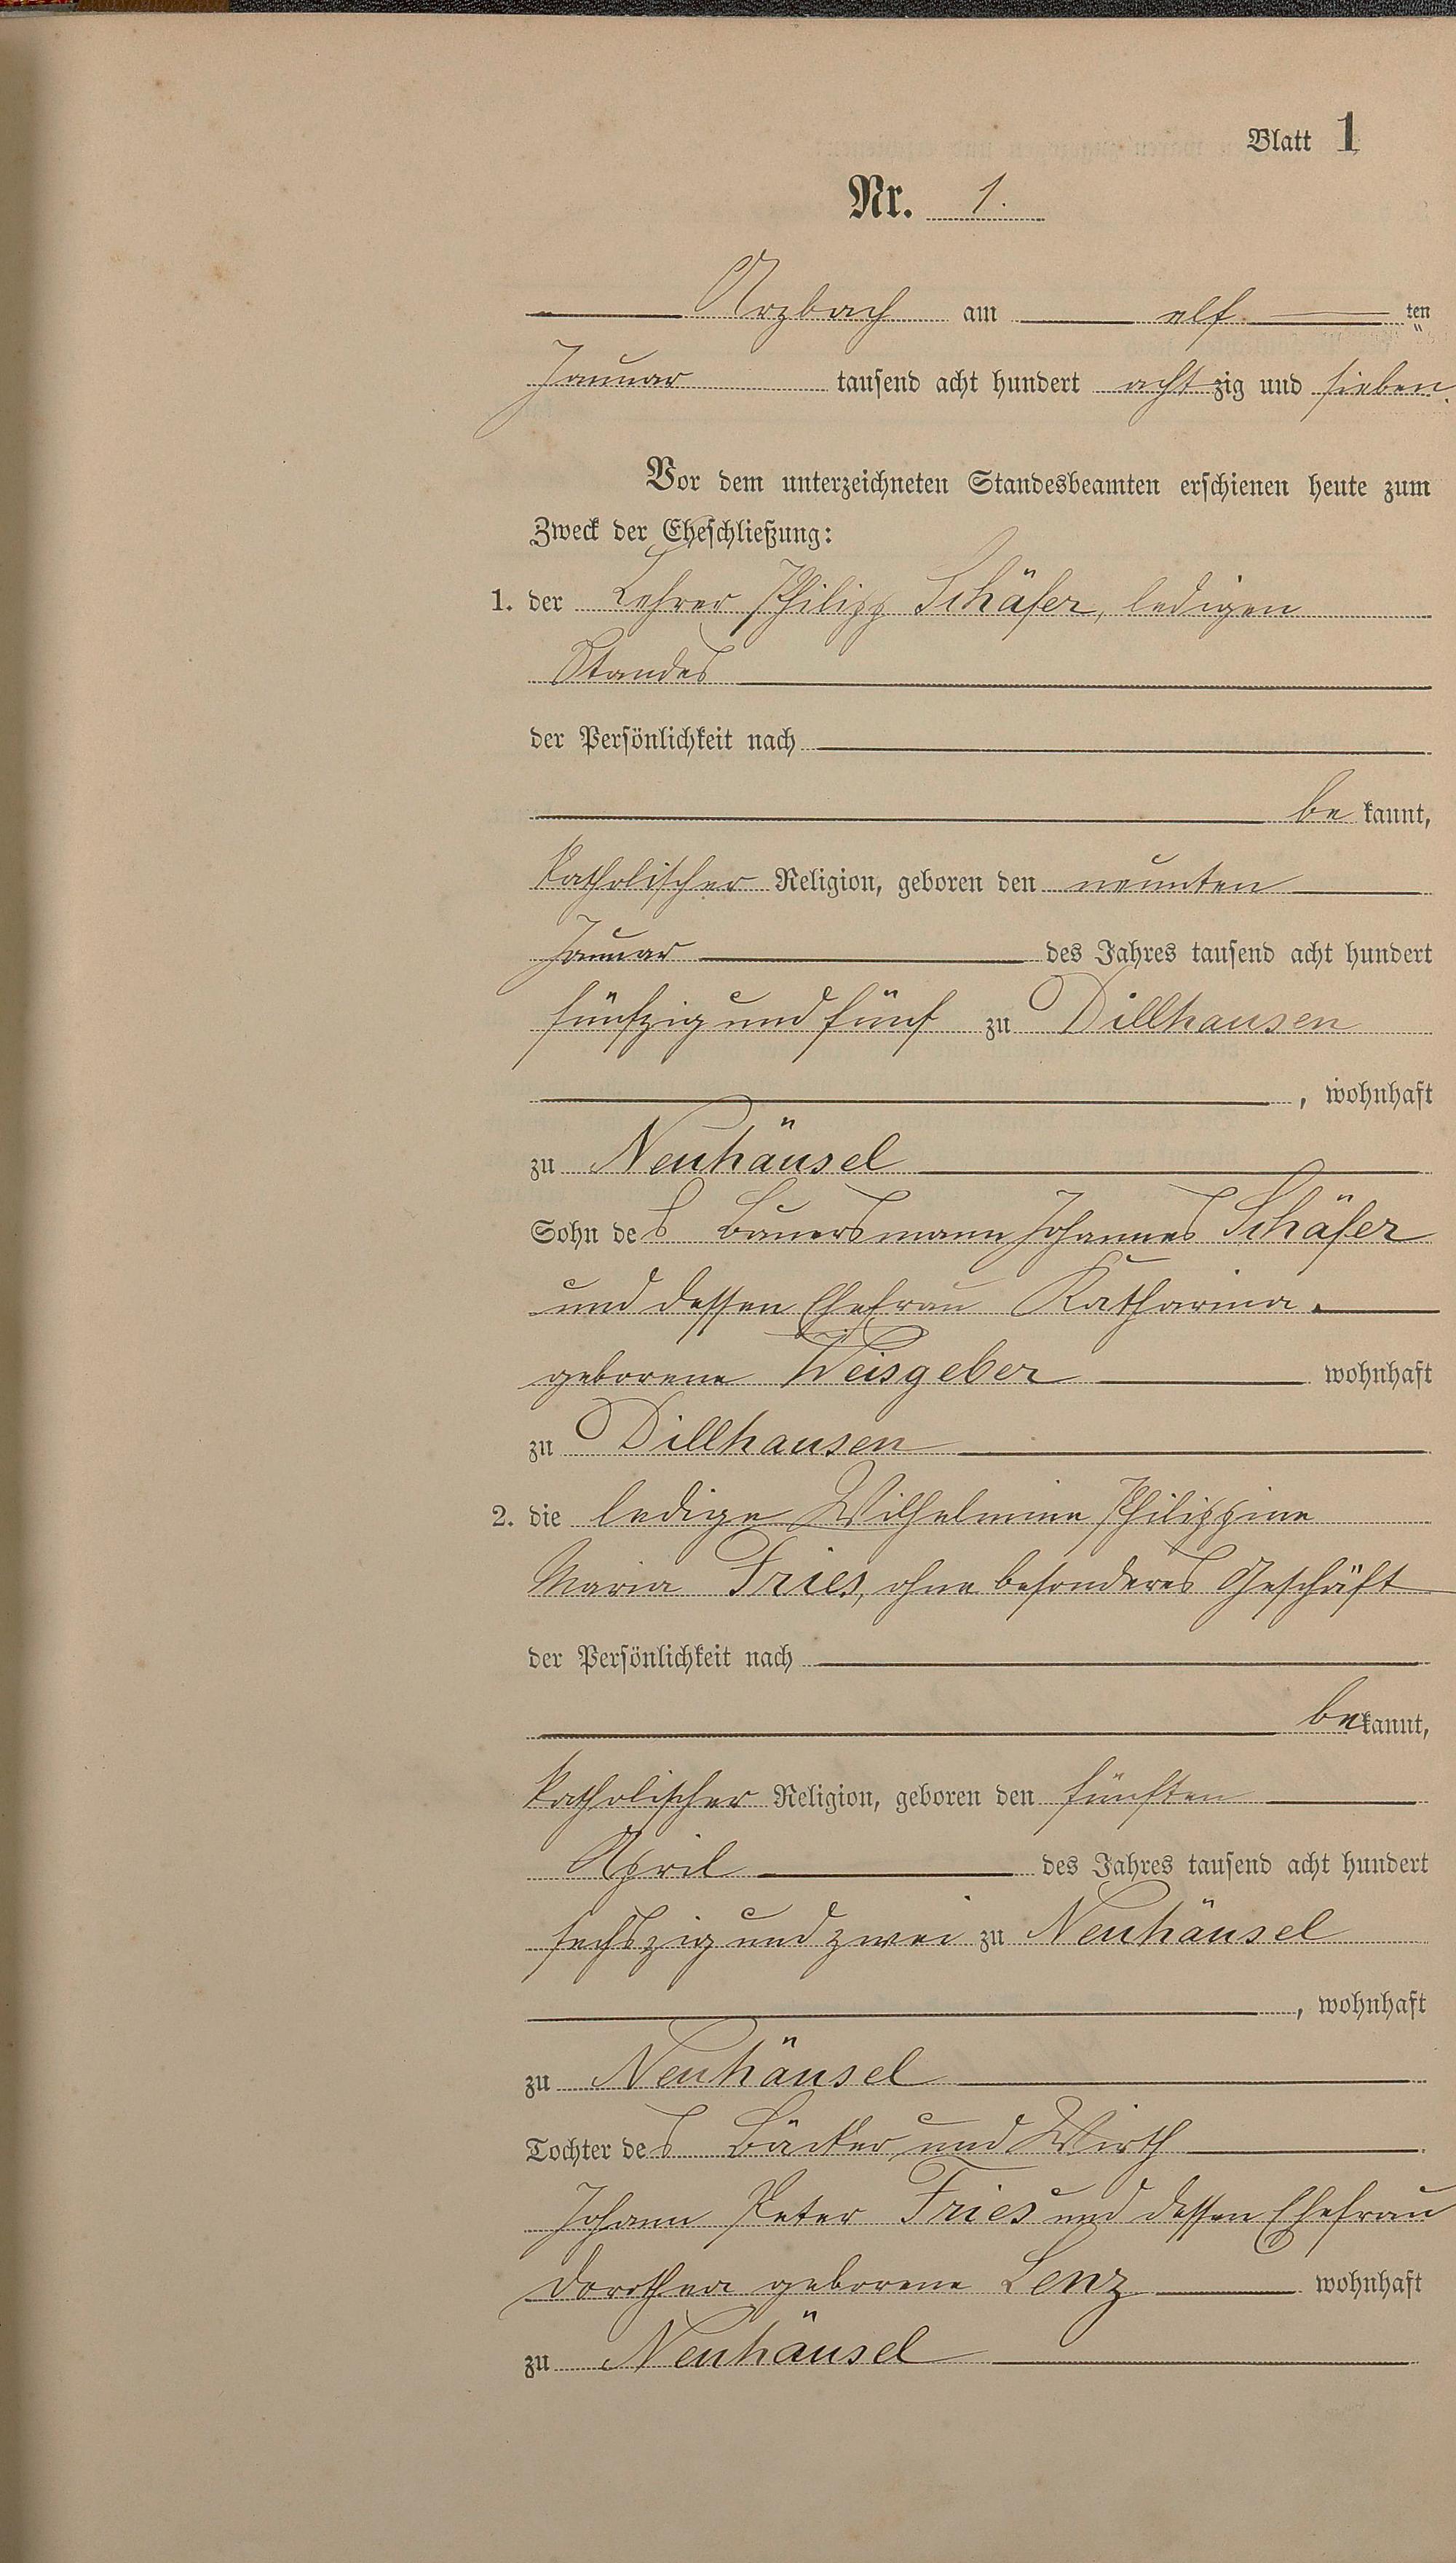 Blatt 1
Nr. 1.
Arzbach am elf ten
Januar tausend acht hundert achtzig und sieben.
Vor dem unterzeichneten Standesbeamten erschienen heute zum
Zweck der Eheschließung:
1. der Lehrer Philipp Schäfer, ledigen
Standes
der Persönlichkeit nach
be kannt,
katholischer Religion, geboren den neunten
Januar des Jahres tausend acht hundert
fünfzig und fünf zu Dillhausen
, wohnhaft
zu Neuhäusel
Sohn des Bauersmann Johannes Schäfer
und dessen Ehefrau Katharina
geborene Weisgeber wohnhaft
zu Dillhausen
2. die ledige Wilhelmine Philippine
Maria Fries, ohne besonderes Geschäft
der Persönlichkeit nach
bekannt,
katholischer Religion, geboren den fünften
April des Jahres tausend acht hundert
sechszig und zwei zu Neuhäusel
, wohnhaft
zu Neuhäusel
Tochter des Bäcker und Wirth
Johann Peter Fries und dessen Ehefrau
Dorothea geborene Lenz wohnhaft
zu Neuhäusel